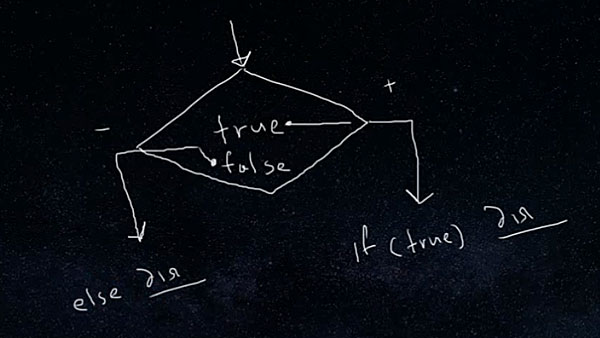 +
-
true
false
if (true) дія
else дія